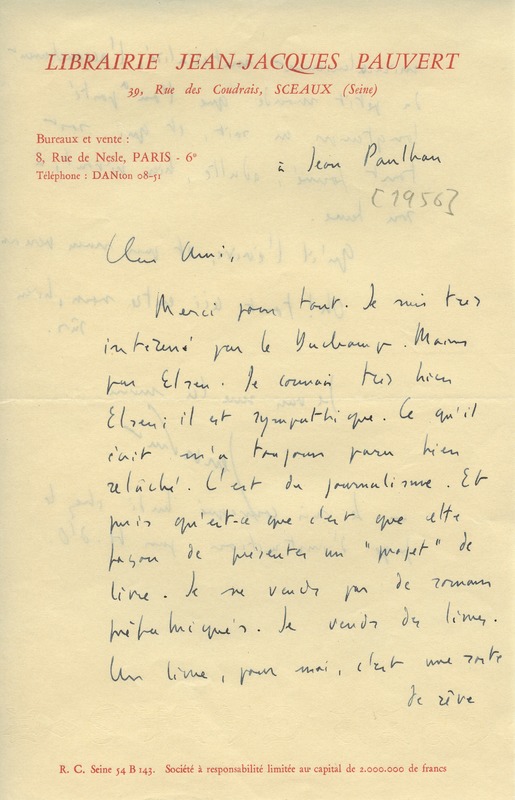 LIBRAIRIE JEAN-JACQUES PAUVERT
39, Rue des Coudrais, SCEAUX (Seine)
Bureaux et vente :
8, Rue de Nesle, PARIS - 6º
Téléphone : DANton 08-51
à Jean Paulhan
[1956]
Cher Ami,
Merci pour tout. Je suis très
intéressé par le Duchamp. Moins
par Elsen. Je connais très bien
Elsen : il est sympathique. Ce qu'il
écrit m'a toujours paru bien
relâché. C'est du journalisme. Et
puis qu'est-ce que c'est que cette
façon de présenter un "projet" de
livre. Je ne vends pas de romans
préfabriqués. Je vends des livres.
Un livre, pour moi, c'est une sorte
de rêve
R. C. Seine 54 B 143. Société à responsabilité limitée au capital de 2.000.000 de francs